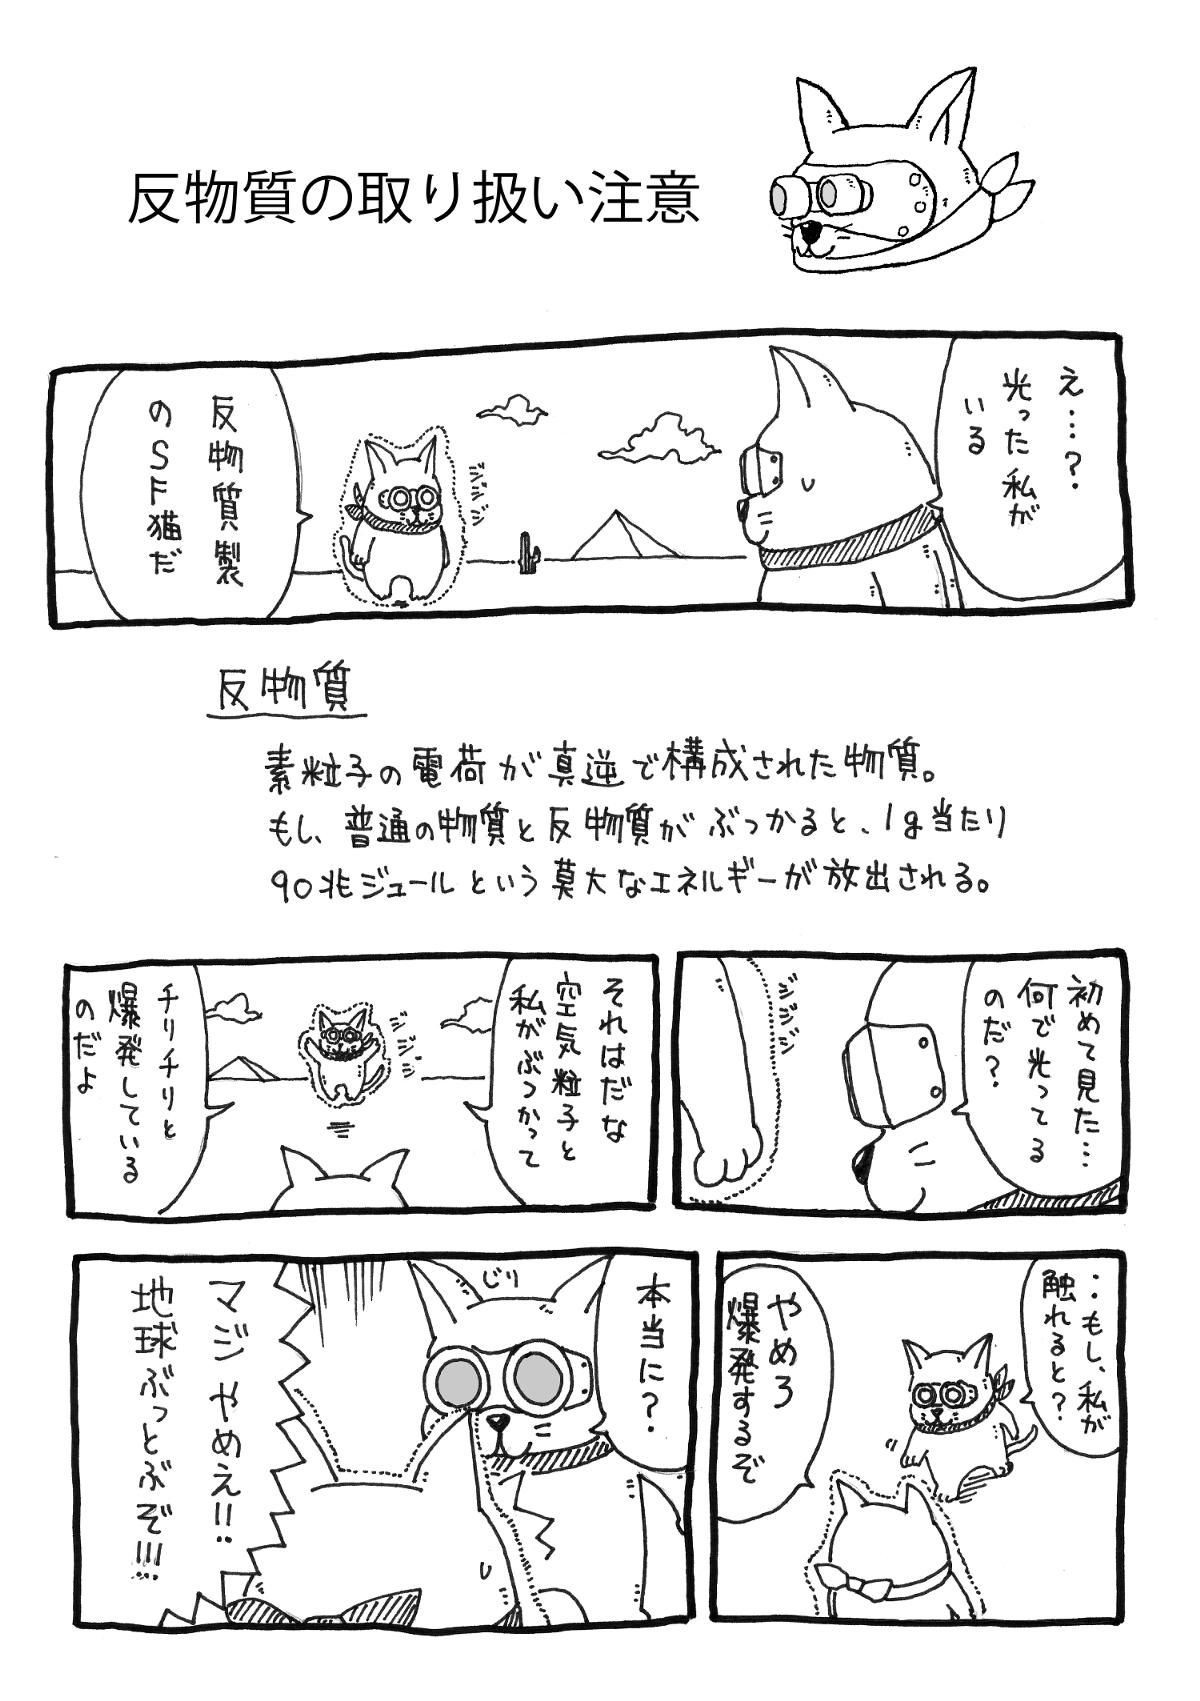 反物質の取り扱い注意
え…?
光った私が
いる
ジジジ
反物質製
のSF猫だ
反物質
素粒子の電荷が真逆で構成された物質。
もし、普通の物質と反物質がぶつかると、1g当たり
90兆ジュールという莫大なエネルギーが放出される。
初めて見た…
何で光ってる
のだ?
ジジジ
それはだな
空気粒子と
私がぶつかって
ジジジ
チリチリと
爆発している
のだよ
‥もし、私が
触れると?
やめろ
爆発するぞ
本当に?
じり
マジやめえ!!
地球ぶっとぶぞ!!!